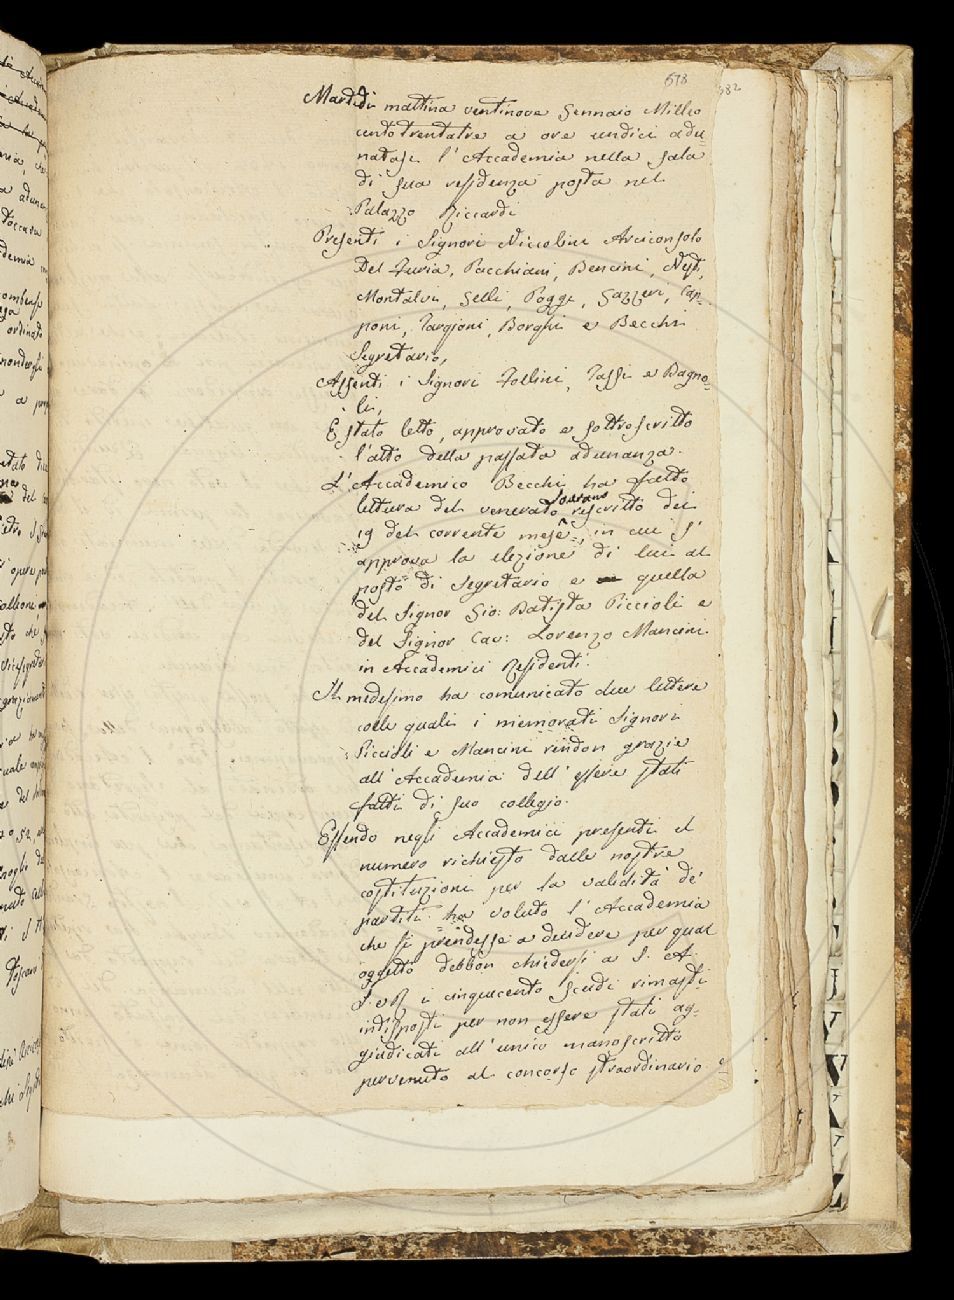 578
582
Martedì mattina ventinove Gennaio Milleo
cento trentatre a ore undici adu-
natasi l'Accademia nella sala
di sua residenza posta nel
Palazzo Riccardi
Presenti i Signori Niccolini Arciconsolo
Del Furia, Pacchiani, Bencini, Nesti,
Montalvi, Gelli, Poggi, Gazzeri, Cap-
poni, Targioni, Borghi e Becchi
Segretario,
Assenti i Signori Follini, Tassi e Bagno-
li,
È stato letto, approvato e sottoscritto
l'atto della passata adunanza.
L'Accademico Becchi ha fatto
lettura del venerato sovrano rescritto dei
19 del corrente mese, in cui s'
approva la elezione di lui al
posto di Segretario e quella
del Signor Gio: Batista Piccioli e
del Signor Cav: Lorenzo Mancini
in Accademici Residenti.
Il medesimo ha comunicato due lettere
colle quali i memorati Signori
Piccioli e Mancini rendon grazie
all'Accademia dell'essere stati
fatti di suo collegio.
Essendo negli Accademici presenti il
numero richiesto dalle nostre
costituzioni per la validità de'
partiti ha voluto l'Accademia
che si prendesse a decidere per qual
oggetto debbon chiedersi a S. A.
I. e R. i cinquecento scudi rimasti
indisposti per non essere stati ag-
giudicati all'unico manoscritto
pervenuto al concorso straordinario